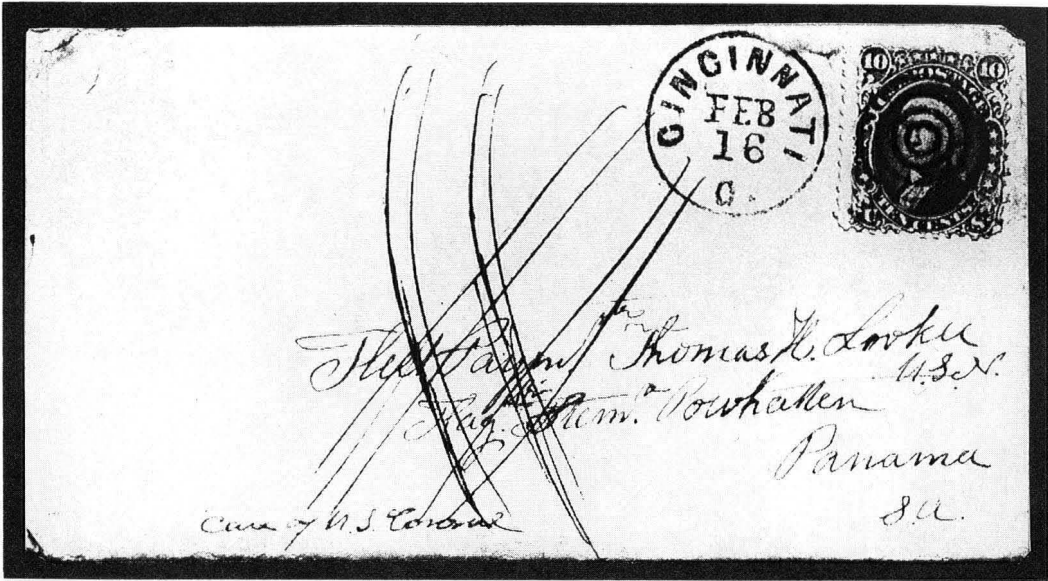 CINCINNATI
FEB
16
O.
10 10
U.S. POSTAGE
TEN CENTS
U S
Fleet Paymtr Thomas H. Looker
U.S.N.
Flag Steamr Powhatten
Panama
S.A.
Care of U.S. Consul